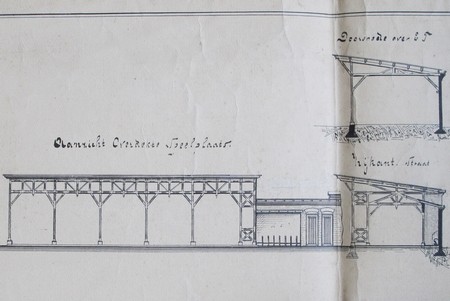 Doorsnede over E F
Aanzicht Overdekte Speelplaats
Zijkant